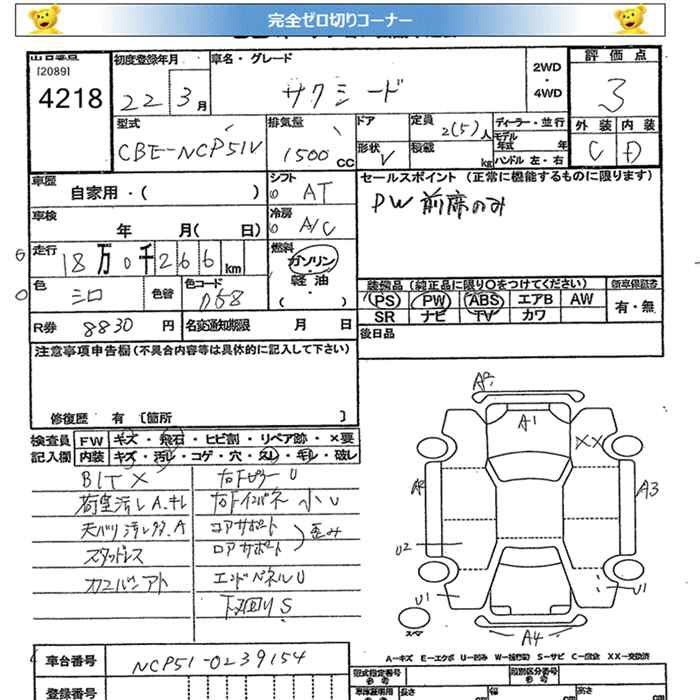 完全ゼロ切りコーナー
[2089]
4218
初度登録年月
22 3月
車名・グレード
サクシード
2WD
・
4WD
評価点
3
外装 内装
C D
型式
CBE-NCP51V
排気量
1500 CC
ドア
形状 V
定員 2(5)人
積載 kg
ディーラー・並行
モデル
年式 年
ハンドル 左・右
車歴
自家用・( )
シフト
AT
セールスポイント (正常に機能するものに限ります)
PW 前席のみ
車検 年 月( 日)
冷房
A/C
走行 18万0千266km
燃料
ガソリン
軽油
( )
色 シロ
色替
色コード 058
装備品 (純正品に限り○をつけてください)
PS PW ABS エアB AW
SR ナビ TV カワ
保証書
有・無
R券 8830 円
名変通知期限 月 日
後日品
注意事項申告欄(不具合内容等は具体的に記入して下さい)
修復歴 有 [箇所 ]
検査員
記入欄
FW キズ・飛石・ヒビ割・リペア跡・×要
内装 キズ・汚レ・コゲ・穴・スレ・キレ・破レ
BIT X
荷室汚レA.キレ
天バリ汚レ
スタッドレス
右Fピラー U
右Fインパネ 小U
コアサポート
ロアサポート
歪み
エンドパネルU
下廻りS
A1
XX
A3
U2
U1
U1
A4
スペア
A-キズ E-エクボ U-凹み S-サビ C-腐食 XX-交換済
車台番号 NCP51-0239154
登録番号
型式指定番号
参考
類別区分番号
参考
長さ cm 幅 cm 高さ cm